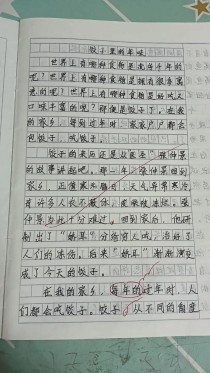 饺子里的年味
世界上有哪种食物是流传千年的
呢？世界上有哪种食物是拥有很多寓
意的呢？世界上有哪种食物是好吃又
口味丰富的呢？那便是饺子了。在我
的家乡，每到过年时，家家户户都会
包饺子、吃饺子。
饺子的来历还是从医圣"张仲景"
的故事讲起吧。那一年，张仲景回到
家乡，正值寒冬腊月，天气异常寒冷
有许多人衣不蔽体，皮肤被冻烂，张
仲景为此十分难过。回到家后，他研
制出了"娇耳"分给穷人吃，治好了
人们的冻伤。后来"娇耳"渐渐演变
成了今天的饺子。
在我的家乡，每年的过年时，人
们都会吃饺子。饺子，从不同的角度